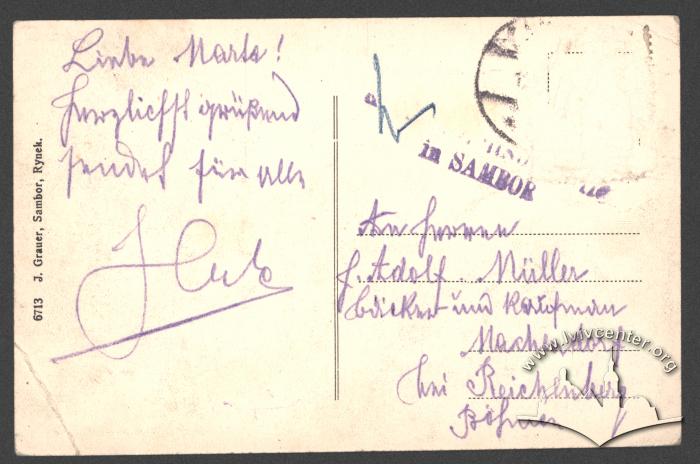 Liebe Marta!
Herzlichst grüßend
sendet für alle
6713 J. Grauer, Sambor, Rynek.
in SAMBOR
An Herren
J. Adolf Müller
Bäcker und Kaufman
Machendorf
bei Reichenberg
Böhmen
www.lvivcenter.org